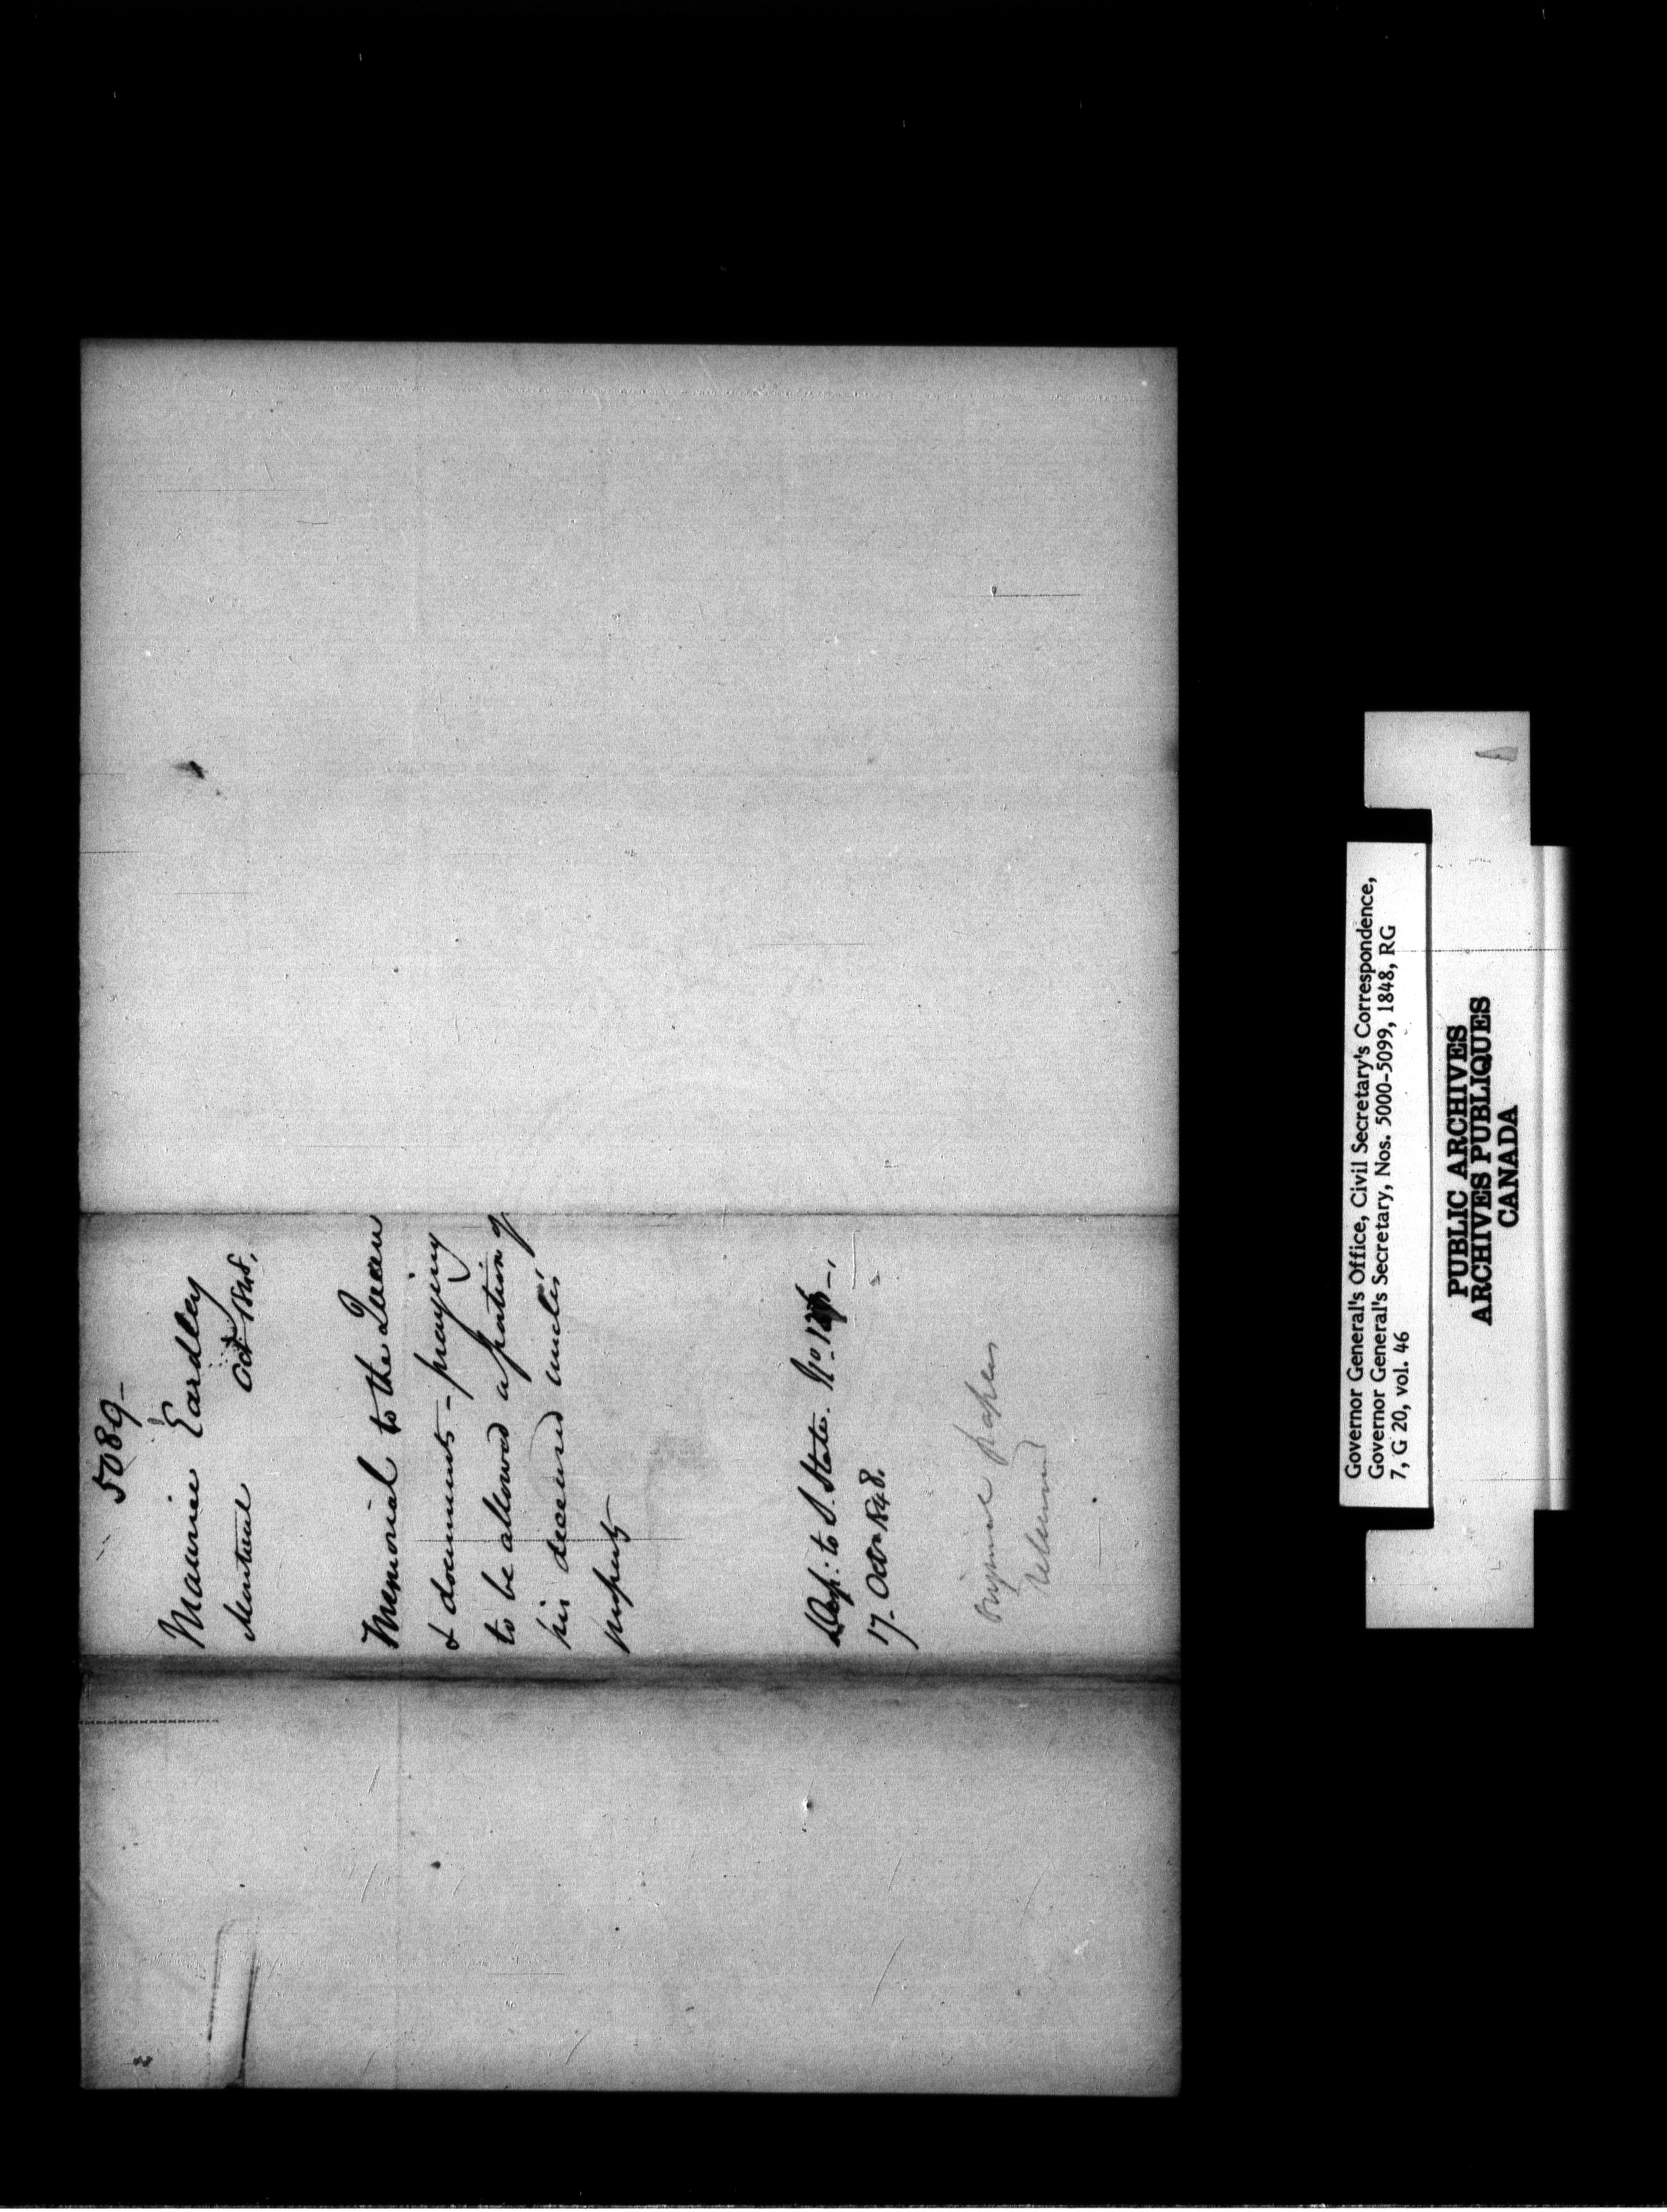 5089-
Maurice Eardley
Montreal Oct 1848,
Memorial to the Queen
& documents - praying
to be allowed a portion of
his deceased uncle's
property
Desp: to S. State. No.
17. Octr 1848.
Original papers
returned
Governor General's Office, Civil Secretary's Correspondence,
Governor General's Secretary, Nos. 5000-5099, 1848, RG
7, G 20, vol. 46
PUBLIC ARCHIVES
ARCHIVES PUBLIQUES
CANADA